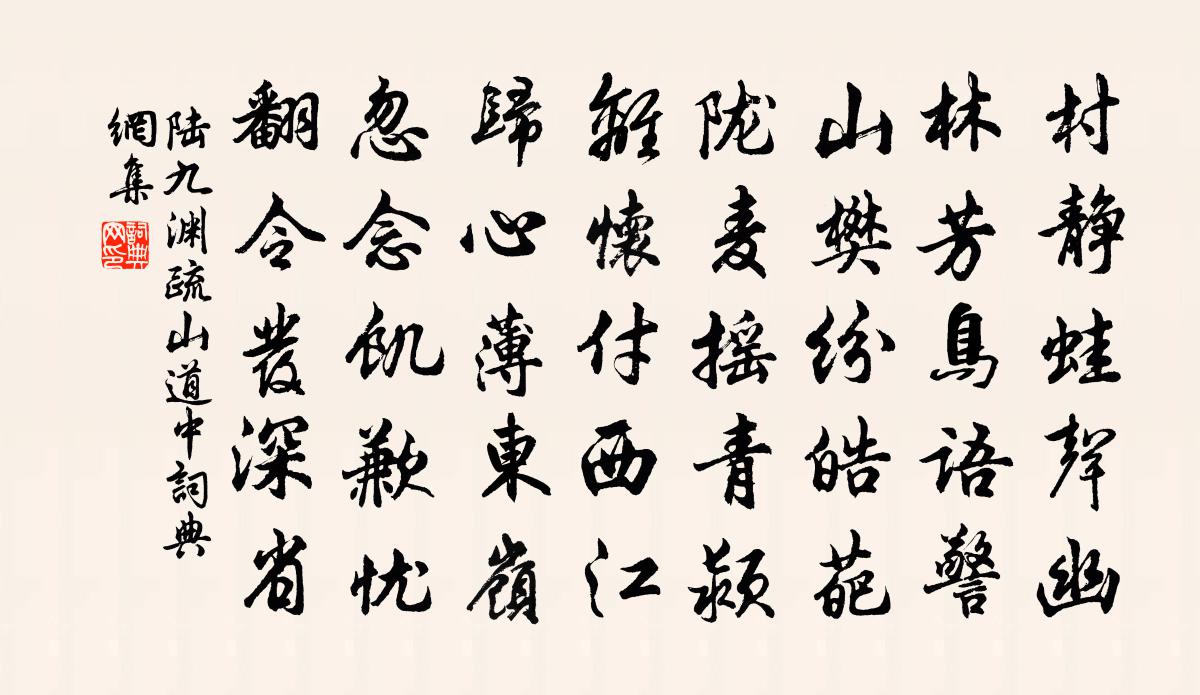 村静蛙聲幽
林芳鳥語警
山樊紛皓葩
陇麦摇青颖
離懷付西江
歸心薄東嶺
忽念飢歉忧
翻令發深省
陸九渊疏山道中詞典
網集
詞典网印